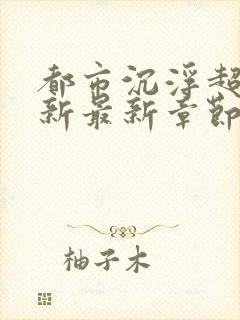 都市沉浮超
新最新章节
柚子木